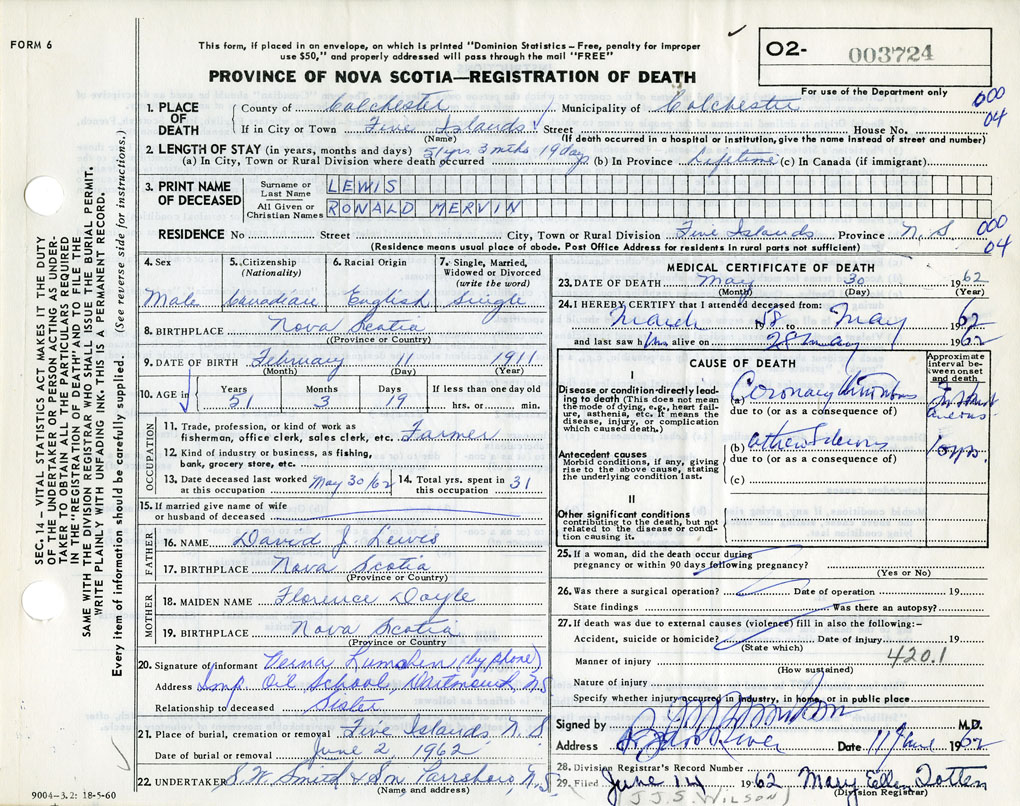 FORM 6
This form, if placed in an envelope, on which is printed "Dominion Statistics – Free, penalty for improper
use $50," and properly addressed will pass through the mail "FREE"
PROVINCE OF NOVA SCOTIA—REGISTRATION OF DEATH
O2- 003724
For use of the Department only
000
04
1. PLACE OF DEATH
County of Colchester Municipality of Colchester
If in City or Town Five Islands Street House No.
(Name) (If death occurred in a hospital or institution, give the name instead of street and number)
2. LENGTH OF STAY (in years, months and days) 51 yrs 3 mths 19 days
(a) In City, Town or Rural Division where death occurred (b) In Province Lifetime (c) In Canada (if immigrant)
3. PRINT NAME OF DECEASED
Surname or Last Name LEWIS
All Given or Christian Names RONALD MERVIN
RESIDENCE No Street City, Town or Rural Division Five Islands Province N. S
000
04
(Residence means usual place of abode. Post Office Address for residents in rural parts not sufficient)
4. Sex
Male
5. Citizenship
(Nationality)
Canadian
6. Racial Origin
English
7. Single, Married,
Widowed or Divorced
(write the word)
Single
8. BIRTHPLACE Nova Scotia
((Province or Country)
9. DATE OF BIRTH February 11 1911
(Month) (Day) (Year)
10. AGE in
Years Months Days If less than one day old
51 3 19 hrs. or min.
OCCUPATION
11. Trade, profession, or kind of work as
fisherman, office clerk, sales clerk, etc. Farmer
12. Kind of industry or business, as fishing,
bank, grocery store, etc.
13. Date deceased last worked
at this occupation May 30/62
14. Total yrs. spent in
this occupation 31
15. If married give name of wife
or husband of deceased
FATHER
16. NAME David J. Lewis
17. BIRTHPLACE Nova Scotia
(Province or Country)
MOTHER
18. MAIDEN NAME Florence Doyle
19. BIRTHPLACE Nova Scotia
(Province or Country)
20. Signature of informant Verna (by phone)
Address Imp Oil School, Dartmouth N.S
Relationship to deceased Sister
21. Place of burial, cremation or removal Five Islands N. S
Date of burial or removal June 2 1962
22. UNDERTAKER S. W. Smith & Son Parrsboro, N.S.
(Name and address)
9004-3.2: 18-5-60
MEDICAL CERTIFICATE OF DEATH
23. DATE OF DEATH May 30 1962
(Month) (Day) (Year)
24. I HEREBY CERTIFY that I attended deceased from:
March 1958 to May 1962
and last saw him alive on 28 May 1962
CAUSE OF DEATH
Approximate
interval be-
tween onset
and death
I
Disease or condition directly lead-
ing to death (This does not mean
the mode of dying, e.g., heart fail-
ure, asthenia, etc. It means the
disease, injury, or complication
which caused death.)
(a) Coronary thrombus
Instant
aneous
due to (or as a consequence of)
Antecedent causes
Morbid conditions, if any, giving
rise to the above cause, stating
the underlying condition last.
(b)
10 yrs.
due to (or as a consequence of)
(c)
II
Other significant conditions
contributing to the death, but not
related to the disease or condi-
tion causing it.
25. If a woman, did the death occur during
pregnancy or within 90 days following pregnancy?
(Yes or No)
26. Was there a surgical operation? Date of operation 19
State findings Was there an autopsy?
27. If death was due to external causes (violence) fill in also the following:–
Accident, suicide or homicide? Date of injury 19
(State which)
420.1
Manner of injury
(How sustained)
Nature of injury
Specify whether injury occurred in industry, in home, or in public place
Signed by M.D.
Address River Date 11 June 1962
28. Division Registrar's Record Number
29. Filed June 14 1962 Mary Ellen Totten
(Division Registrar)
(J. J. S. WILSON)
SEC. 14 – VITAL STATISTICS ACT MAKES IT THE DUTY
OF THE UNDERTAKER OR PERSON ACTING AS UNDER-
TAKER TO OBTAIN ALL THE PARTICULARS REQUIRED
IN THE "REGISTRATION OF DEATH" AND TO FILE THE
SAME WITH THE DIVISION REGISTRAR WHO SHALL ISSUE THE BURIAL PERMIT.
WRITE PLAINLY WITH UNFADING INK. THIS IS A PERMANENT RECORD.
Every item of information should be carefully supplied. (See reverse side for instructions.)